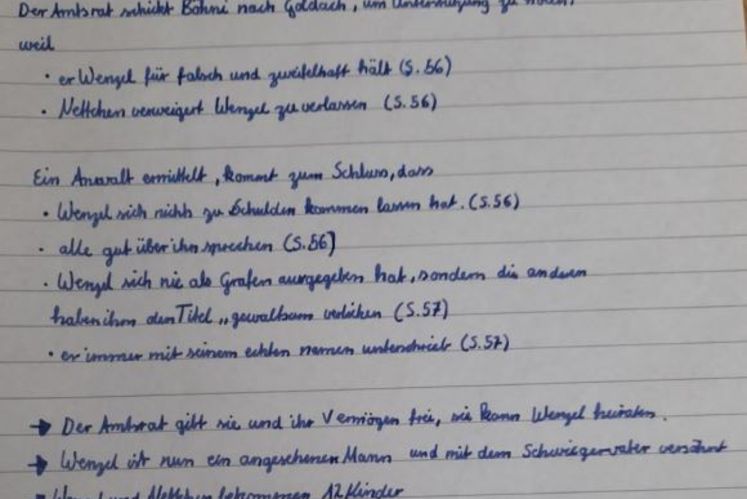 Der Amtsrat schickt Böhni nach Goldach, um Unterstützung zu holen,
weil
· er Wenzel für falsch und zweifelhaft hält (S.56)
· Nettchen verweigert Wenzel zu verlassen (S.56)
Ein Anwalt ermittelt, kommt zum Schluss, dass
· Wenzel sich nichts zu Schulden kommen lassen hat. (S.56)
· alle gut über ihn sprechen (S.56)
· Wenzel sich nie als Grafen ausgegeben hat, sondern die anderen
haben ihm den Titel „gewaltsam verliehen (S.57)
· er immer mit seinem echten namen unterschrieb (S.57)
→ Der Amtsrat gibt sie und ihr Vermögen frei, sie kann Wenzel heiraten.
→ Wenzel ist nun ein angesehenen Mann und mit dem Schwiegervater versöhnt
→ Wenzel und Nettchen bekommen 12 Kinder